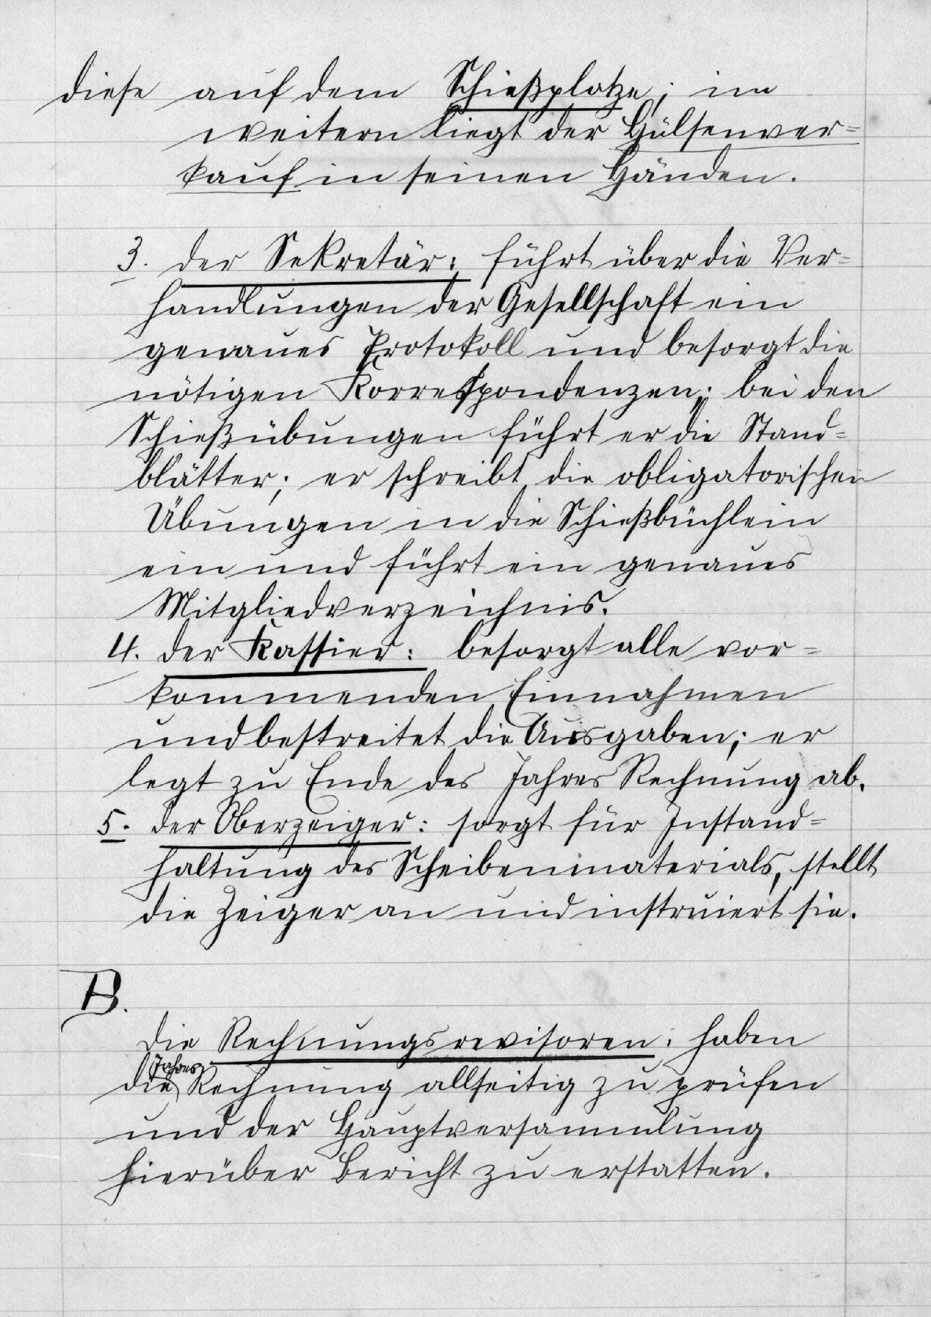 diese auf dem Schießplatze; im
weitern liegt der Hülsenver=
kauf in seinen Händen.
3. der Sekretär: führt über die Ver=
handlungen der Gesellschaft ein
genaues Protokoll und besorgt die
nötigen Korrespondenzen; bei den
Schießübungen führt er die Stand=
blätter; er schreibt die obligatorischen
Übungen in die Schießbüchlein
ein und führt ein genaues
Mitgliedverzeichnis.
4. der Kassier: besorgt alle vor=
kommenden Einnahmen
und bestreitet die Ausgaben; er
legt zu Ende des Jahres Rechnung ab.
5. der Oberzeiger: sorgt für Instand=
haltung des Scheibenmaterials, stellt
die Zeiger an und instruiert sie.
B.
die Rechnungsrevisoren: haben
die Jahres Rechnung allseitig zu prüfen
und der Hauptversammlung
hierüber Bericht zu erstatten.